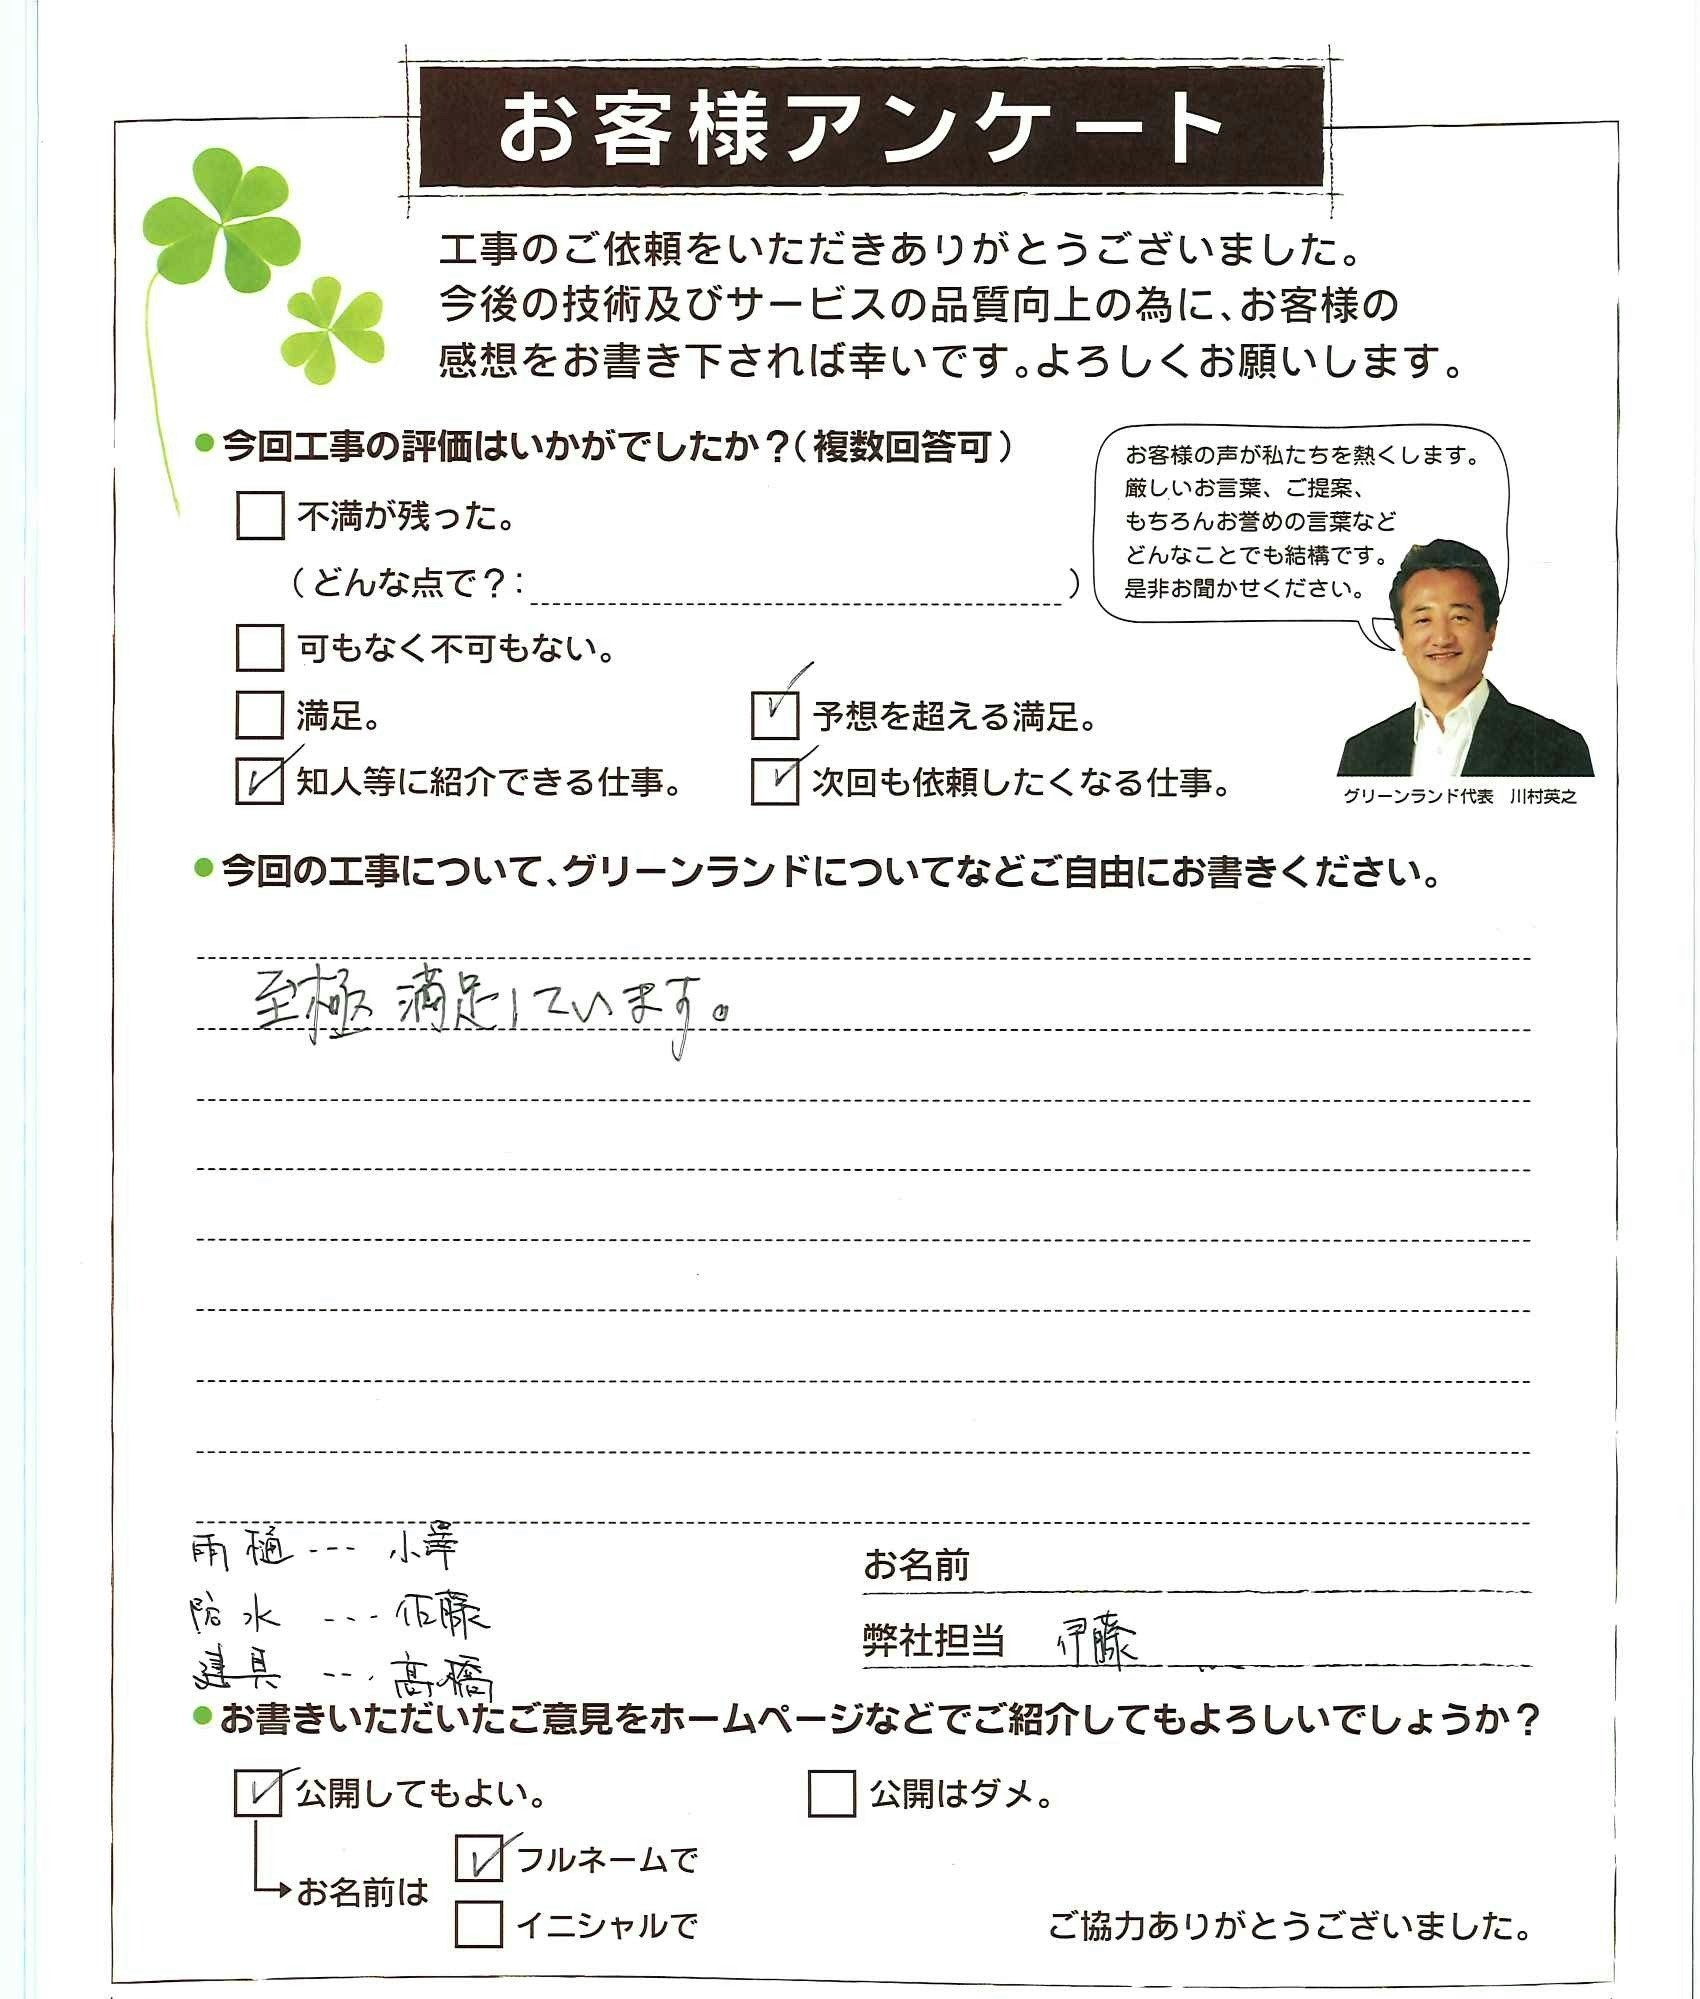 お客様アンケート
工事のご依頼をいただきありがとうございました。
今後の技術及びサービスの品質向上の為に、お客様の
感想をお書き下されば幸いです。よろしくお願いします。
●今回工事の評価はいかがでしたか？（複数回答可）
お客様の声が私たちを熱くします。
厳しいお言葉、ご提案、
もちろんお誉めの言葉など
どんなことでも結構です。
是非お聞かせください。
グリーンランド代表　川村英之
□ 不満が残った。
（どんな点で？：　　　）
□ 可もなく不可もない。
□ 満足。　☑ 予想を超える満足。
☑ 知人等に紹介できる仕事。　☑ 次回も依頼したくなる仕事。
●今回の工事について、グリーンランドについてなどご自由にお書きください。
至極満足しています。
雨樋 --- 小澤
防水 --- 佐藤
建具 --- 髙橋
お名前
弊社担当　伊藤
●お書きいただいたご意見をホームページなどでご紹介してもよろしいでしょうか？
☑ 公開してもよい。　□ 公開はダメ。
お名前は
☑ フルネームで
□ イニシャルで
ご協力ありがとうございました。